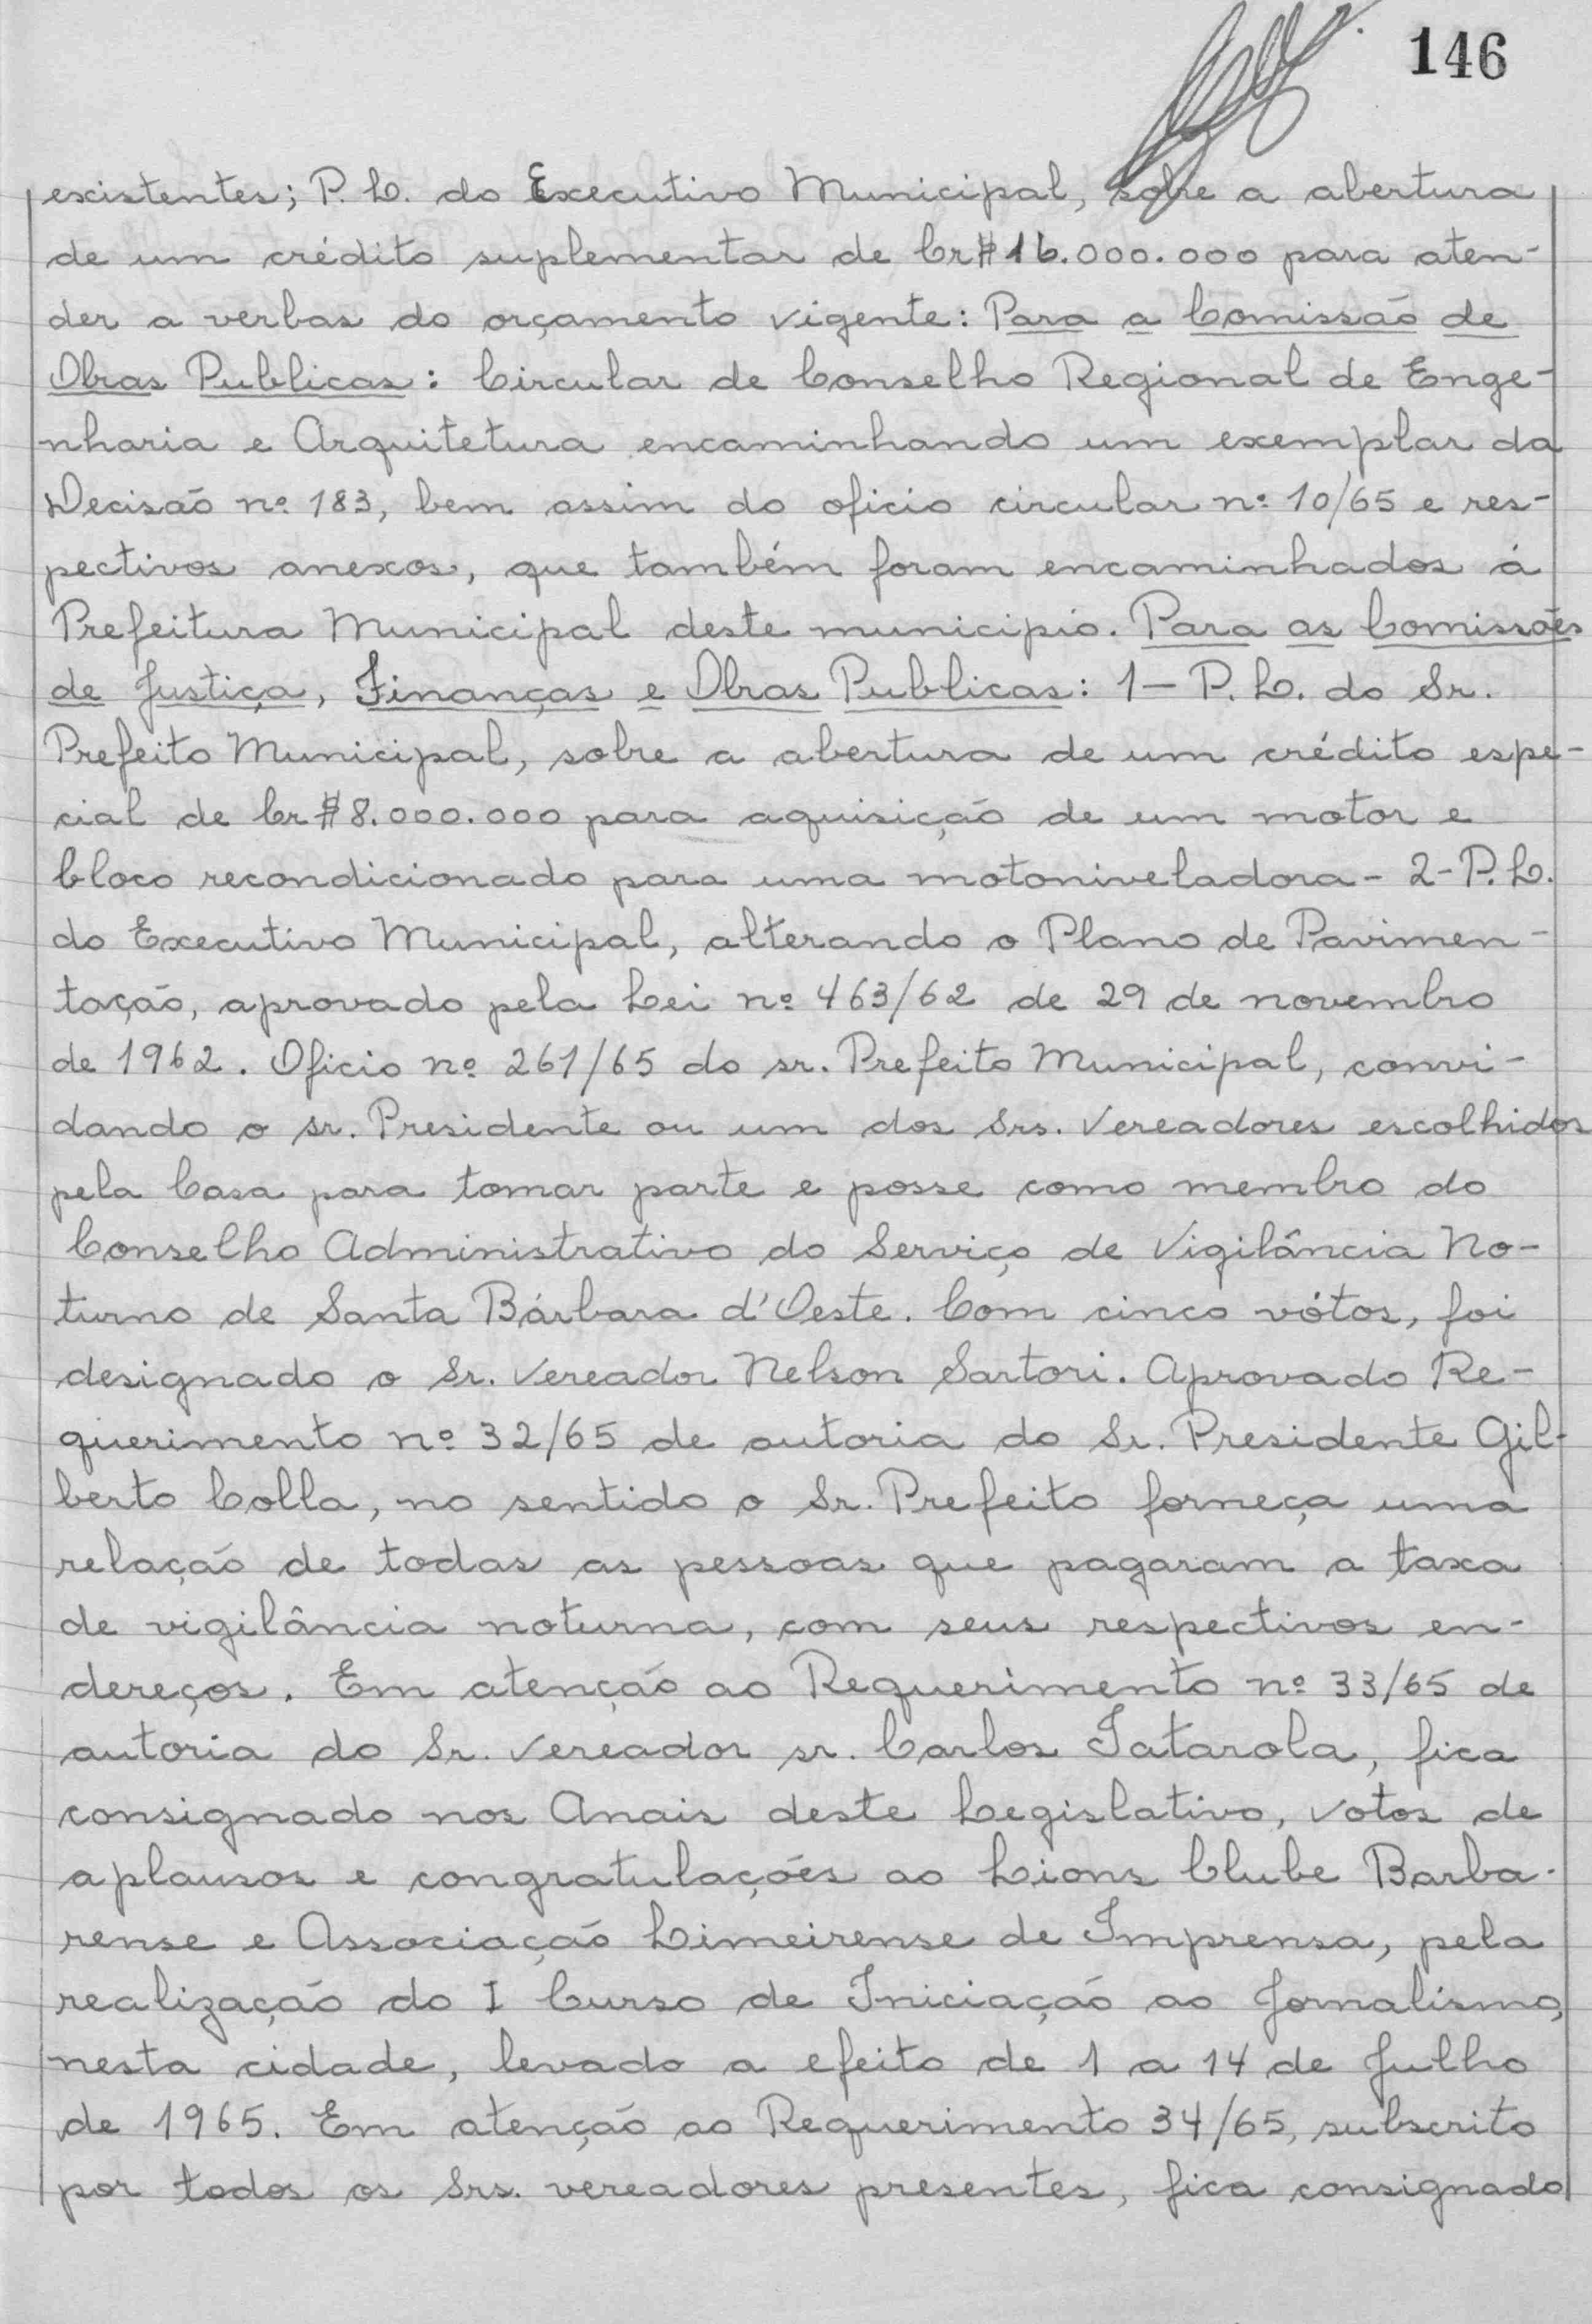 146
existentes; P. L. do Executivo Municipal, sobre a abertura
de um crédito suplementar de Cr$ 16.000.000 para aten-
der a verbas do orçamento vigente: Para a Comissão de
Obras Publicas: Circular de Conselho Regional de Enge-
nharia e Arquitetura encaminhando um exemplar da
Decisão nº 183, bem assim do oficio circular nº 10/65 e res-
pectivos anexos, que também foram encaminhados á
Prefeitura Municipal deste municipio. Para as Comissões
de Justiça, Finanças e Obras Publicas: 1 - P. L. do Sr.
Prefeito Municipal, sobre a abertura de um crédito espe-
cial de Cr$ 8.000.000 para aquisição de um motor e
bloco recondicionado para uma motoniveladora - 2 - P. L.
do Executivo Municipal, alterando o Plano de Pavimen-
tação, aprovado pela Lei nº 463/62 de 29 de novembro
de 1962. Oficio nº 261/65 do sr. Prefeito Municipal, convi-
dando o sr. Presidente ou um dos Srs. Vereadores escolhidos
pela Casa para tomar parte e posse como membro do
Conselho Administrativo do Serviço de Vigilância No-
turno de Santa Bárbara d'Oeste. Com cinco vótos, foi
designado o Sr. Vereador Nelson Sartori. Aprovado Re-
querimento nº 32/65 de autoria do Sr. Presidente Gil-
berto Colla, no sentido o Sr. Prefeito forneça uma
relação de todas as pessoas que pagaram a taxa
de vigilância noturna, com seus respectivos en-
dereços. Em atenção ao Requerimento nº 33/65 de
autoria do Sr. Vereador sr. Carlos Tatarola, fica
consignado nos Anais deste Legislativo, votos de
aplausos e congratulações ao Lions Clube Barba-
rense e Associação Limeirense de Imprensa, pela
realização do I Curso de Iniciação ao Jornalismo,
nesta cidade, levado a efeito de 1 a 14 de Julho
de 1965. Em atenção ao Requerimento 34/65, subscrito
por todos os Srs. vereadores presentes, fica consignado